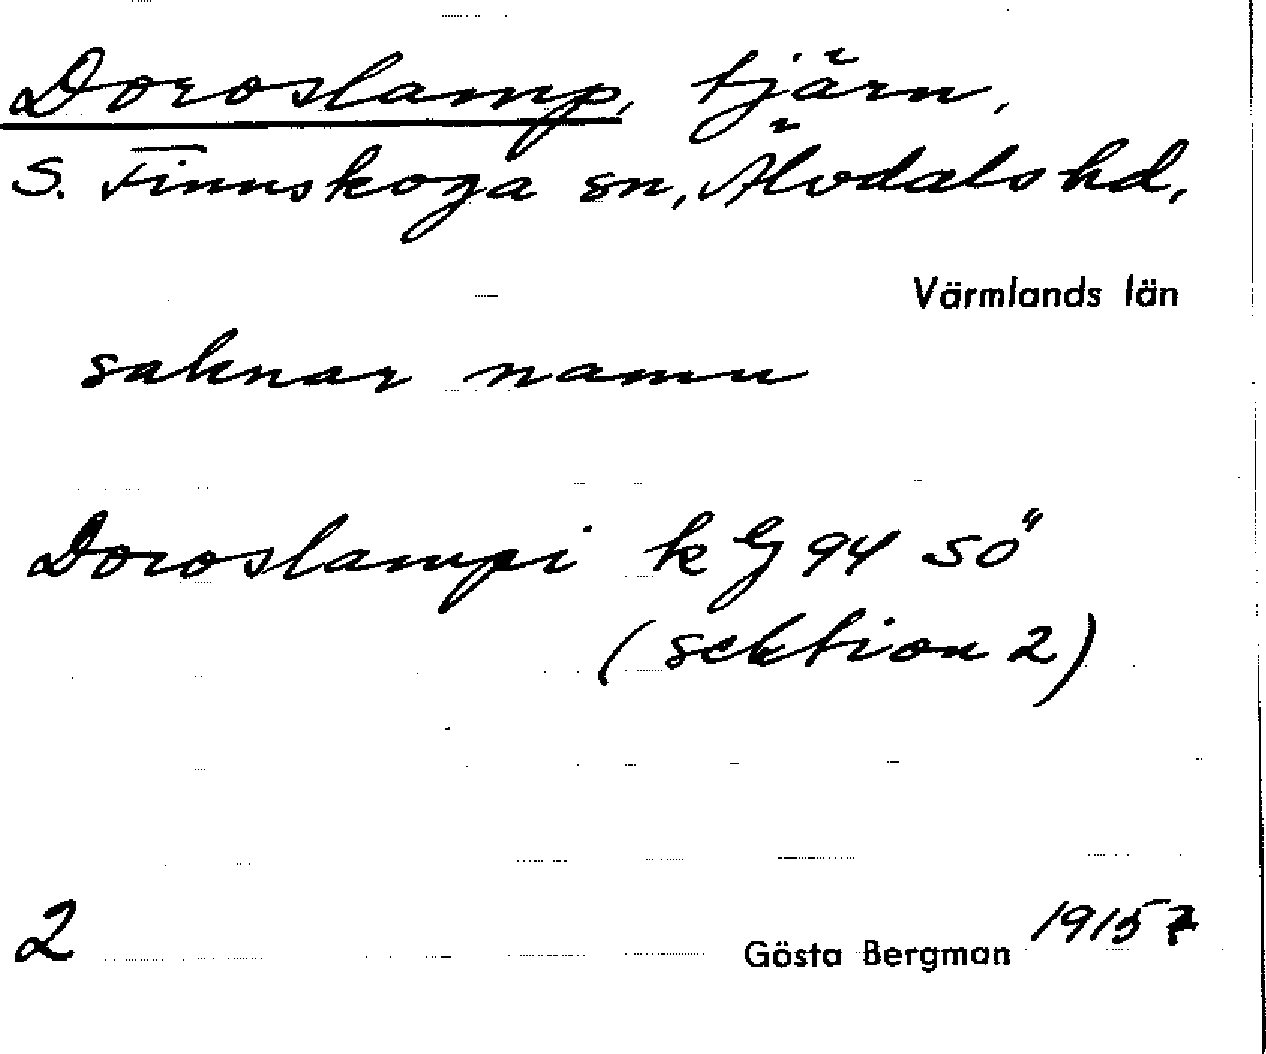 Doroslamp, tjärn,
S. Finnskoga sn, Älvdals hd,
Värmlands län
saknar namn
Doroslampi k G 94 SÖ
(sektion 2)
2 Gösta Bergman